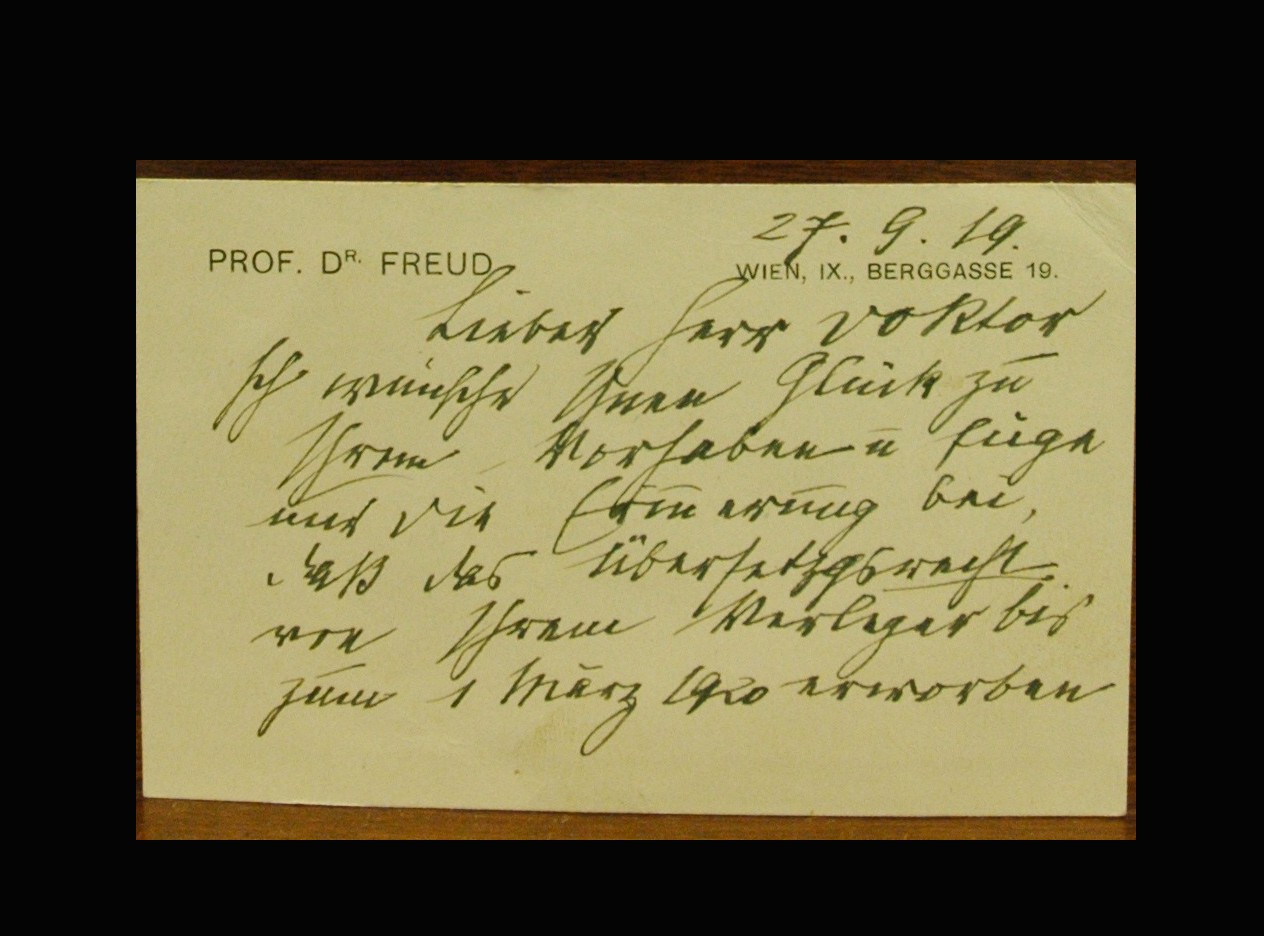 27. 9. 19.
PROF. DR. FREUD
WIEN, IX., BERGGASSE 19.
Lieber Herr Doktor
Ich wünsche Ihnen Glück zu
Ihrem Vorhaben u füge
nur die Erinnerung bei,
daß das Übersetzgsrecht
von Ihrem Verleger bis
zum 1 März 1920 erworben